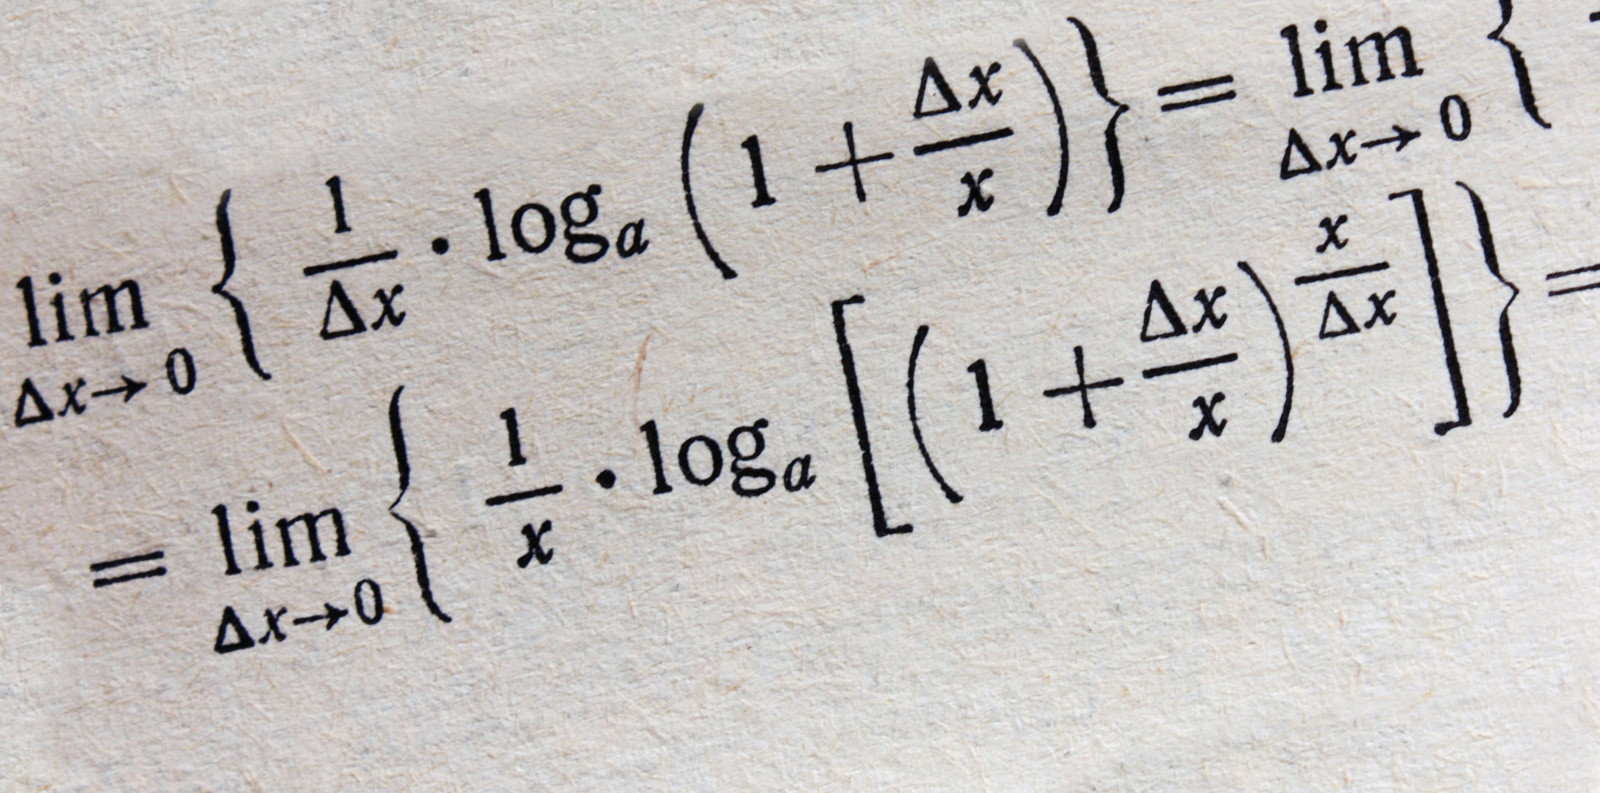 lim Δx→0 { 1/Δx · logₐ ( 1 + Δx/x ) } = lim Δx→0 {
= lim Δx→0 { 1/x · logₐ [ ( 1 + Δx/x )^(x/Δx) ] } =